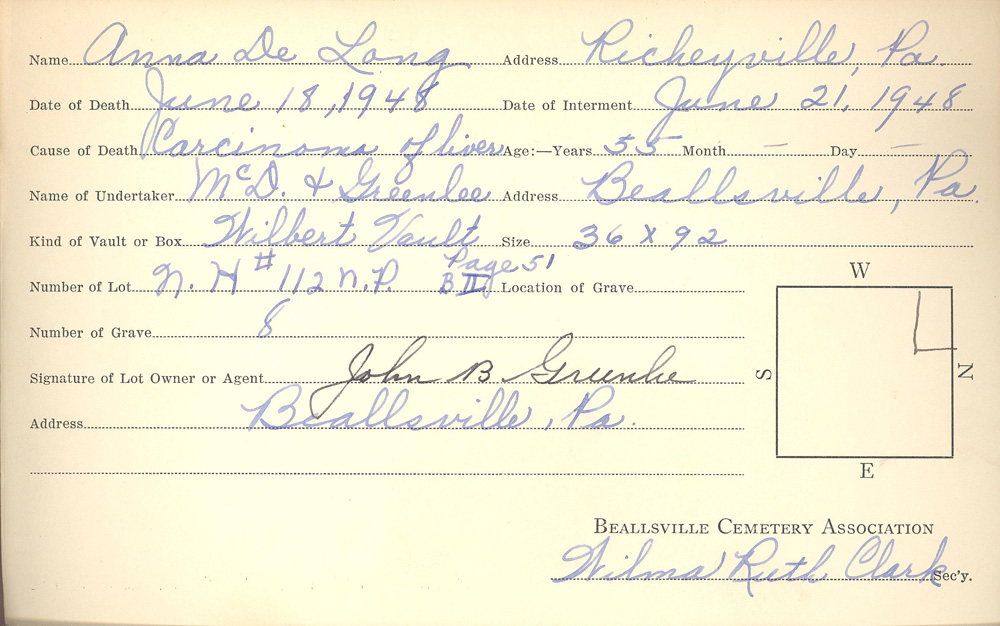 Name Anna De Long Address Richeyville, Pa.
Date of Death June 18, 1948 Date of Interment June 21, 1948
Cause of Death Carcinoma of liver Age:—Years 55 Month — Day —
Name of Undertaker McD. & Greenlee Address Beallsville, Pa.
Kind of Vault or Box Wilbert Vault Size 36 x 92
Page 51
Number of Lot N. H # 112 N.P. B II Location of Grave
W
Number of Grave 8
S
N
Signature of Lot Owner or Agent John B. Greenlee
Address Beallsville, Pa.
E
BEALLSVILLE CEMETERY ASSOCIATION
Wilma Ruth Clark Sec'y.